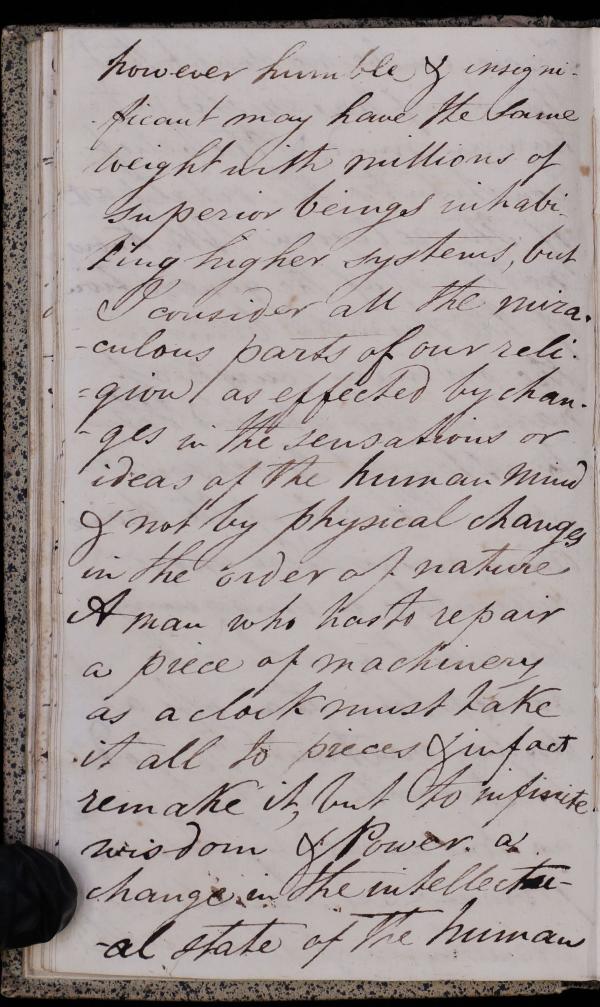 however humble & insigni-
-ficant may have the same
weight with millions of
superior beings inhabi-
ting higher systems, but
I consider all the mira-
-culous parts of our reli-
=gion as effected by chan-
-ges in the sensations or
ideas of the human mind
& not by physical changes
in the order of nature
A man who has to repair
a piece of machinery
as a clock must take
it all to pieces & in fact
remake it, but to infinite
wisdom & Power. a
change in the intellectu-
-al state of the human